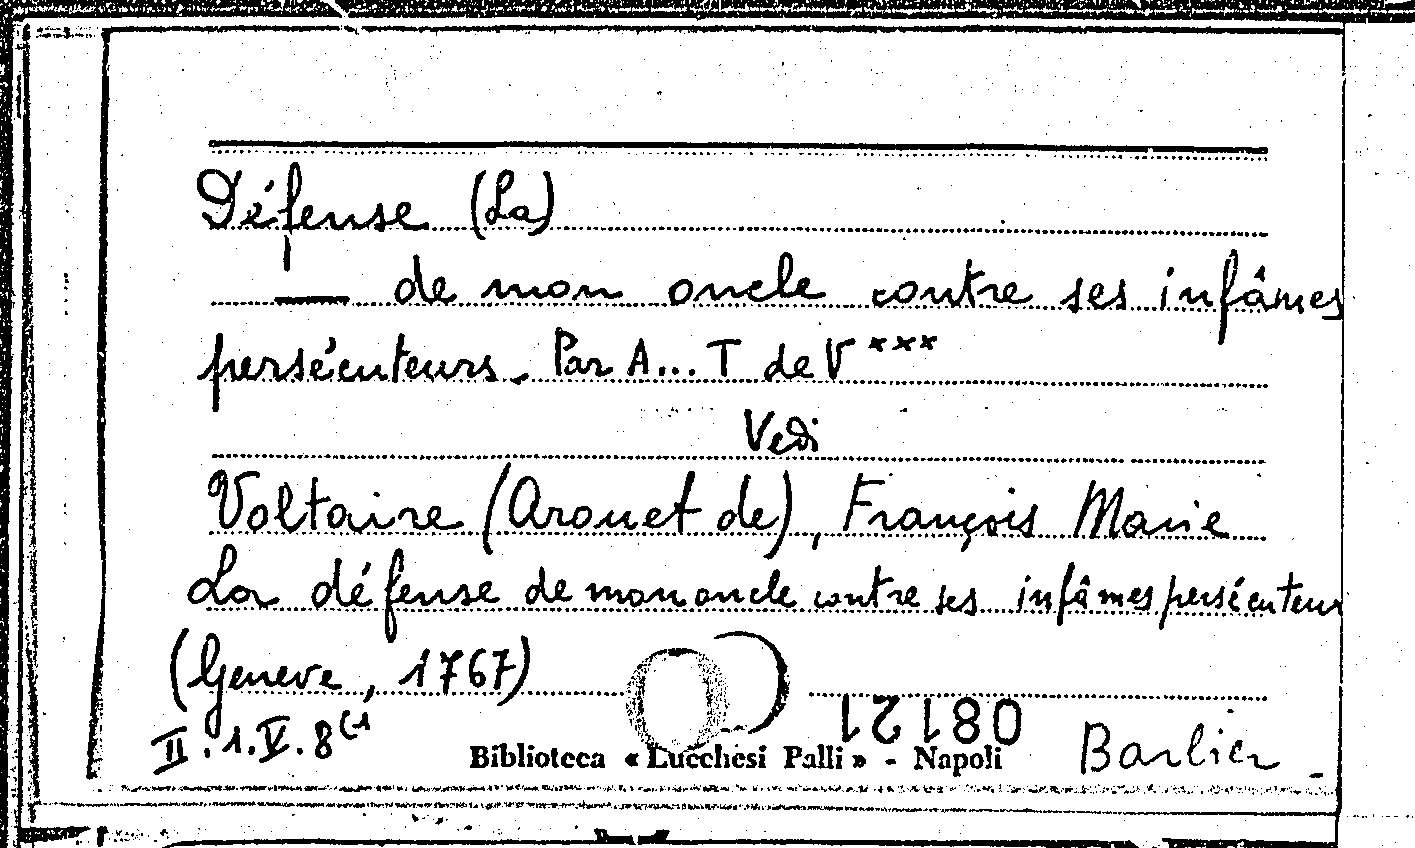 Défense (La)
— de mon oncle contre ses infâmes
persécuteurs. Par A... T de V***
Vedi
Voltaire (Arouet de), François Marie
La défense de mon oncle contre ses infâmes persécuteurs
(Geneve, 1767)
II.1.V.8(1
08121
Biblioteca « Lucchesi Palli » - Napoli
Barbier